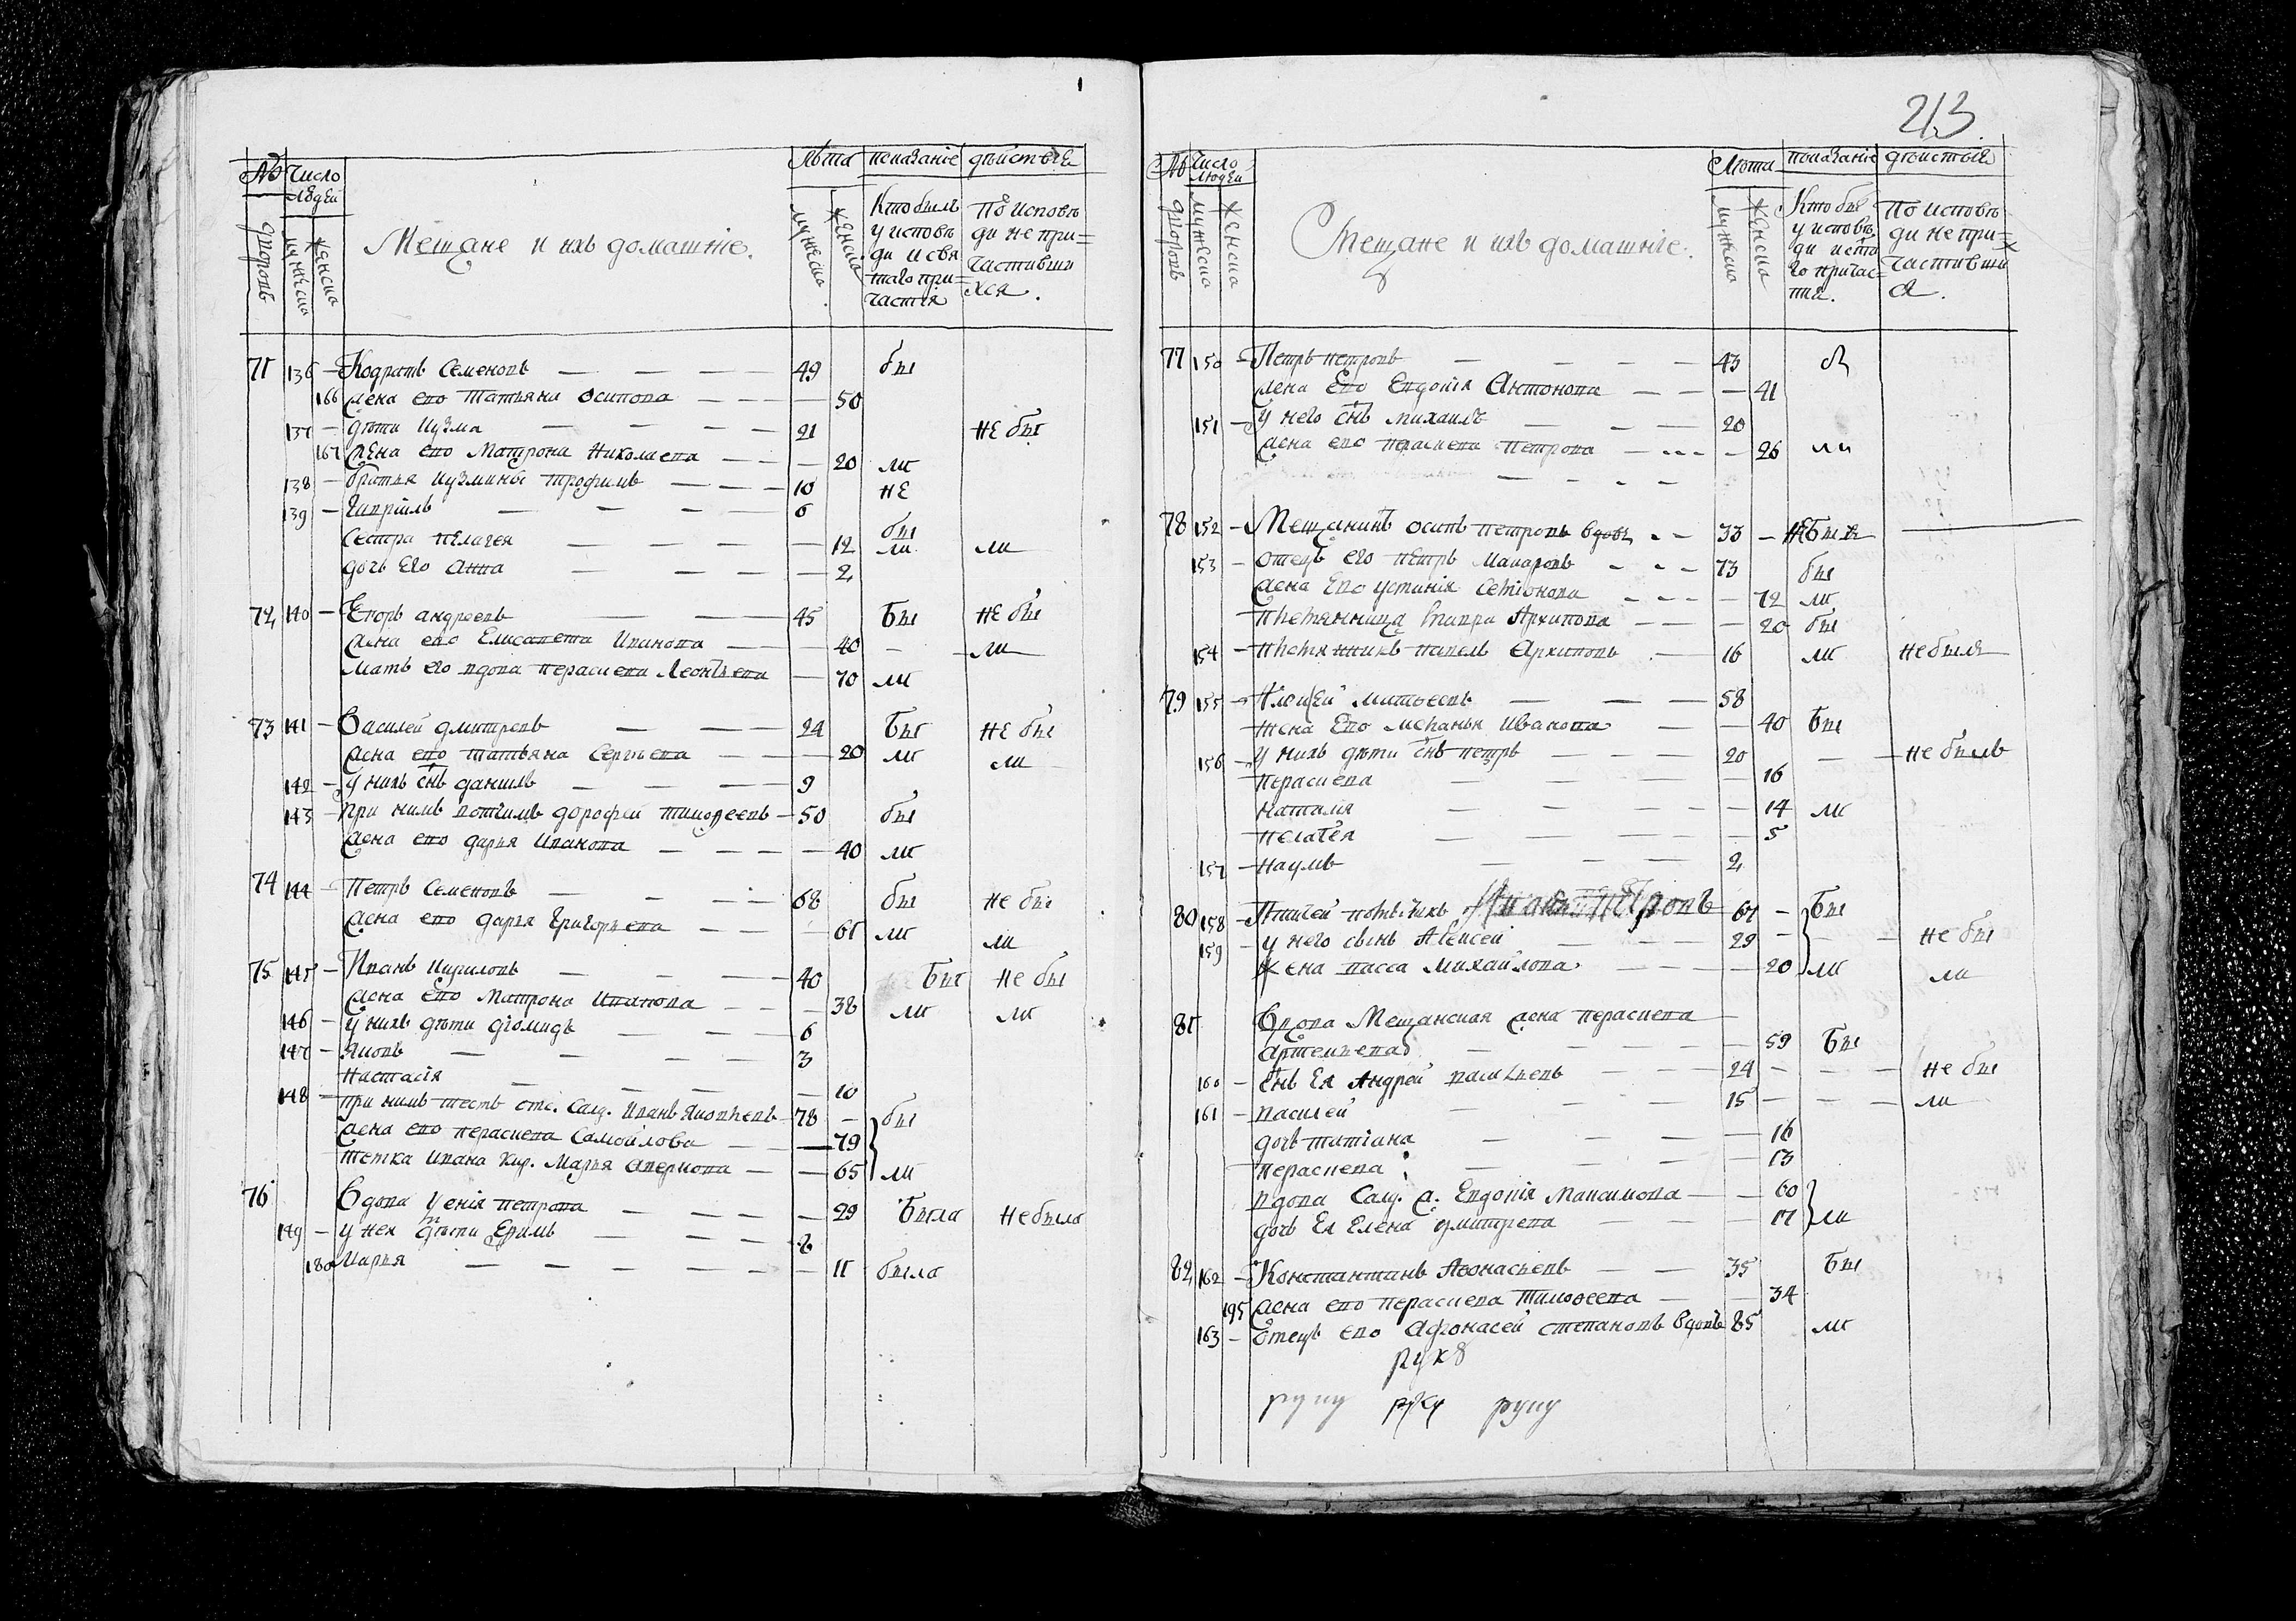 № Число людей Лѣта показанiе дѣйствiя
дворовъ мужеска женска Мещане и ихъ домашнiе. мужеска женска Кто былъ у исповѣди и святаго причастiя По исповѣди не причастившихся.
71 136 — Кодратъ Семеновъ — 49 бы
166 жена ево Татьяна Осипова — 50
137 — дѣти Кузма — 21 не бы
167 жена ево Матрона Николаева — 20 ли
138 — братья Кузмины Трофимъ — 10 не
139 — Гаврiилъ — 6
Сестра Пелагея — 12 бы ли ли
дочь Его Анна — 2
72 140 — Егоръ андреевъ — 45 Бы не бы
жена ево Елисавета Иванова — 40 — ли
мать его вдова Параскева Леонтьева — 70 ли
73 141 — Василей дмитревъ — 24 Бы не бы
жена ево татьяна Сергѣева — 20 ли ли
142 — у нихъ снъ данилъ — 9
143 — при нихъ вотчимъ дорофей тимофеевъ — 50 бы
жена ево дарья Иванова — 40 ли
74 144 — Петръ Семеновъ — 68 бы не бы
жена ево дарья Григорьева — 61 ли ли
75 145 — Иванъ Кириловъ — 40 Бы Не бы
жена ево Матрона Иванова — 38 ли ли
146 — у нихъ дѣти дiомидъ — 6
147 — Яковъ — 3
Настасiя — 10
148 — при нихъ тесть отс. Сащ. Иванъ Яковлевъ — 78 — бы
жена ево Параскева Самойлова — 79
тетка Ивана Кир. Марья Аверкова — 65 ли
76 Вдова Ксенiя петрова — 29 Была Не была
149 — у нея дѣти Ефимъ — 8
180 Марья — 11 была
213
№ Число людей Лѣта показанiе дѣйствiя
дворовъ мужеска женска Мещане и ихъ домашнiе. мужеска женска Кто бы у исповѣди и сто го причастiя. По исповѣди не причастившихся.
77 150 — Петръ петровъ — 43 б
жена Ево Евдокiя Антонова — 41
151 — у него снъ михаилъ — 20
жена ево параскева Петрова — 26 ли
78 152 — Мещанинъ осипъ петровъ вдовъ — 33 — не бы
153 — отецъ его петръ Макаровъ — 73 бы
жена Ево устинiя — 72 ли
племянница Варвара Архипова — 20 бы
154 — племянникъ павелъ Архиповъ — 16 ли не былъ
79 155 — Алексей матвеевъ — 58
жена Ево меланья Иванова — 40 Бы
156 — у нихъ дѣти снъ петръ — 20 — не былъ
параскева — 16
наталiя — 14 ли
пелагея — 5
157 — наумъ — 2
80 158 — петровъ 67 — Бы
159 — у него сынъ Алексей — 29 — не бы
жена васса михайлова — 20 ли ли
81 Вдова Мещанская жена параскева
Артемьева — 59 Бы
160 — снъ Ея Андрей васильевъ — 24 — не бы
161 — василей — 15 — ли
дочь татiана — 16
параскева — 13
вдова Сащ. ж. Евдокiя Максимова — 60
дочь Ея Елена дмитрева — 17 ли
82 162 — Константинъ Афонасьевъ — 35 Бы
195 жена ево параскева Тимофеева — 34
163 — отецъ ево Афонасей степановъ вдовъ 85 ли
рукȣ
руку руку руку